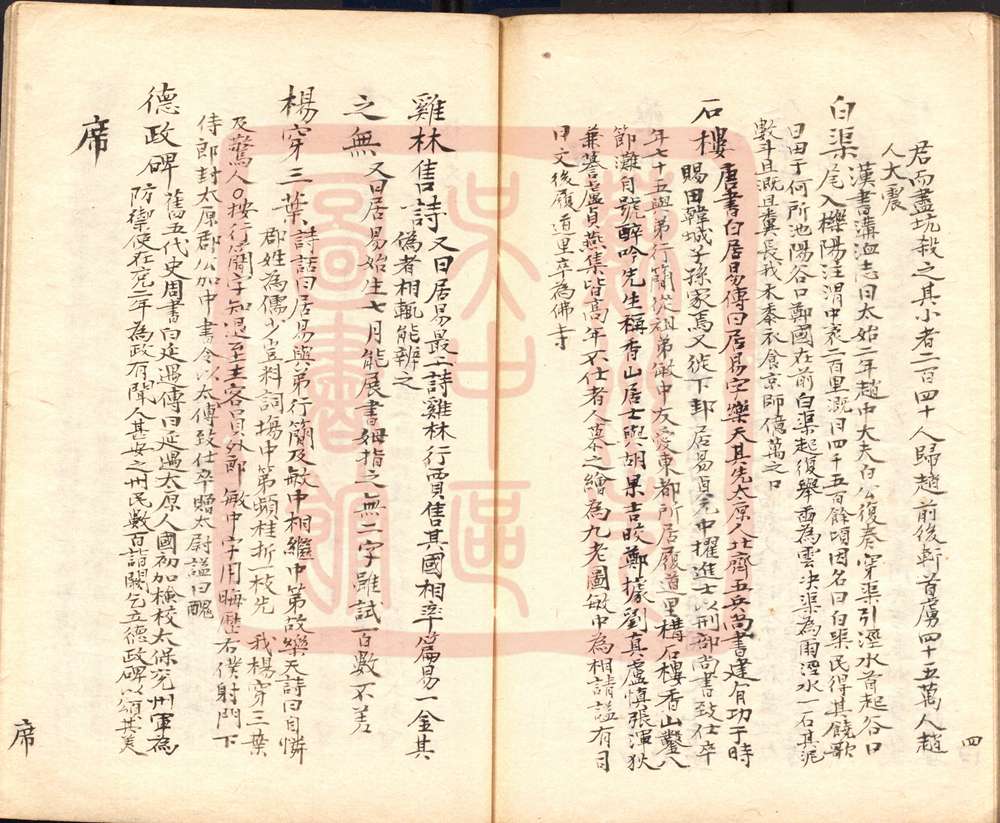 君而盡坑殺之其小者二百四十人歸趙前後斬首虜四十五萬人趙
人大震
白渠
漢書溝洫志曰太始二年趙中大夫白公復奏穿渠引涇水首起谷口
尾入櫟陽注渭中袤二百里溉田四千五百餘頃因名曰白渠民得其饒歌
曰田于何所池陽谷口鄭國在前白渠起後舉臿為雲決渠為雨涇水一石其泥
數斗且溉且糞長我禾黍衣食京師億萬之口
石樓
唐書白居易傳曰居易字樂天其先太原人北齊五兵尚書建有功于時
賜田韓城子孫家焉又徙下邽居易貞元中擢進士以刑部尚書致仕卒
年七十五與弟行簡從祖弟敏中友愛東都所居履道里構石樓香山鑿八
節灘自號醉吟先生稱香山居士與胡杲吉皎鄭據劉真盧慎張渾狄
兼謩盧貞燕集皆高年不仕者人慕之繪為九老圖敏中為相請謚有司
曰文後履道里卒為佛寺
四
雞林售詩
又曰居易最工詩雞林行賈售其國相率篇易一金其
偽者相輒能辨之
之無
又曰居易始生七月能展書姆指之無二字雖試百數不差
楊穿三葉
詩話曰居易與弟行簡及敏中相繼中第故樂天詩曰自憐
郡姓為儒少豈料詞場中第頻桂折一枝先我楊穿三葉
及驚人○按行簡字知退至主客員外郎敏中字用晦歷右僕射門下
侍郎封太原郡公加中書令以太傅致仕卒贈太尉謚曰醜
德政碑
舊五代史周書白延遇傳曰延遇太原人國初加檢校太保兗州軍為
防禦使在兗二年為政有聞人甚安之州民數百詣闕乞立德政碑以頌其美
席
席